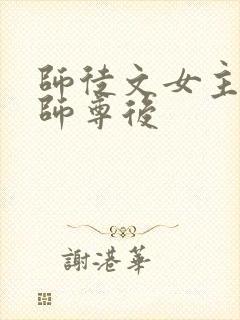 師徒文女主
師尊後
謝港華